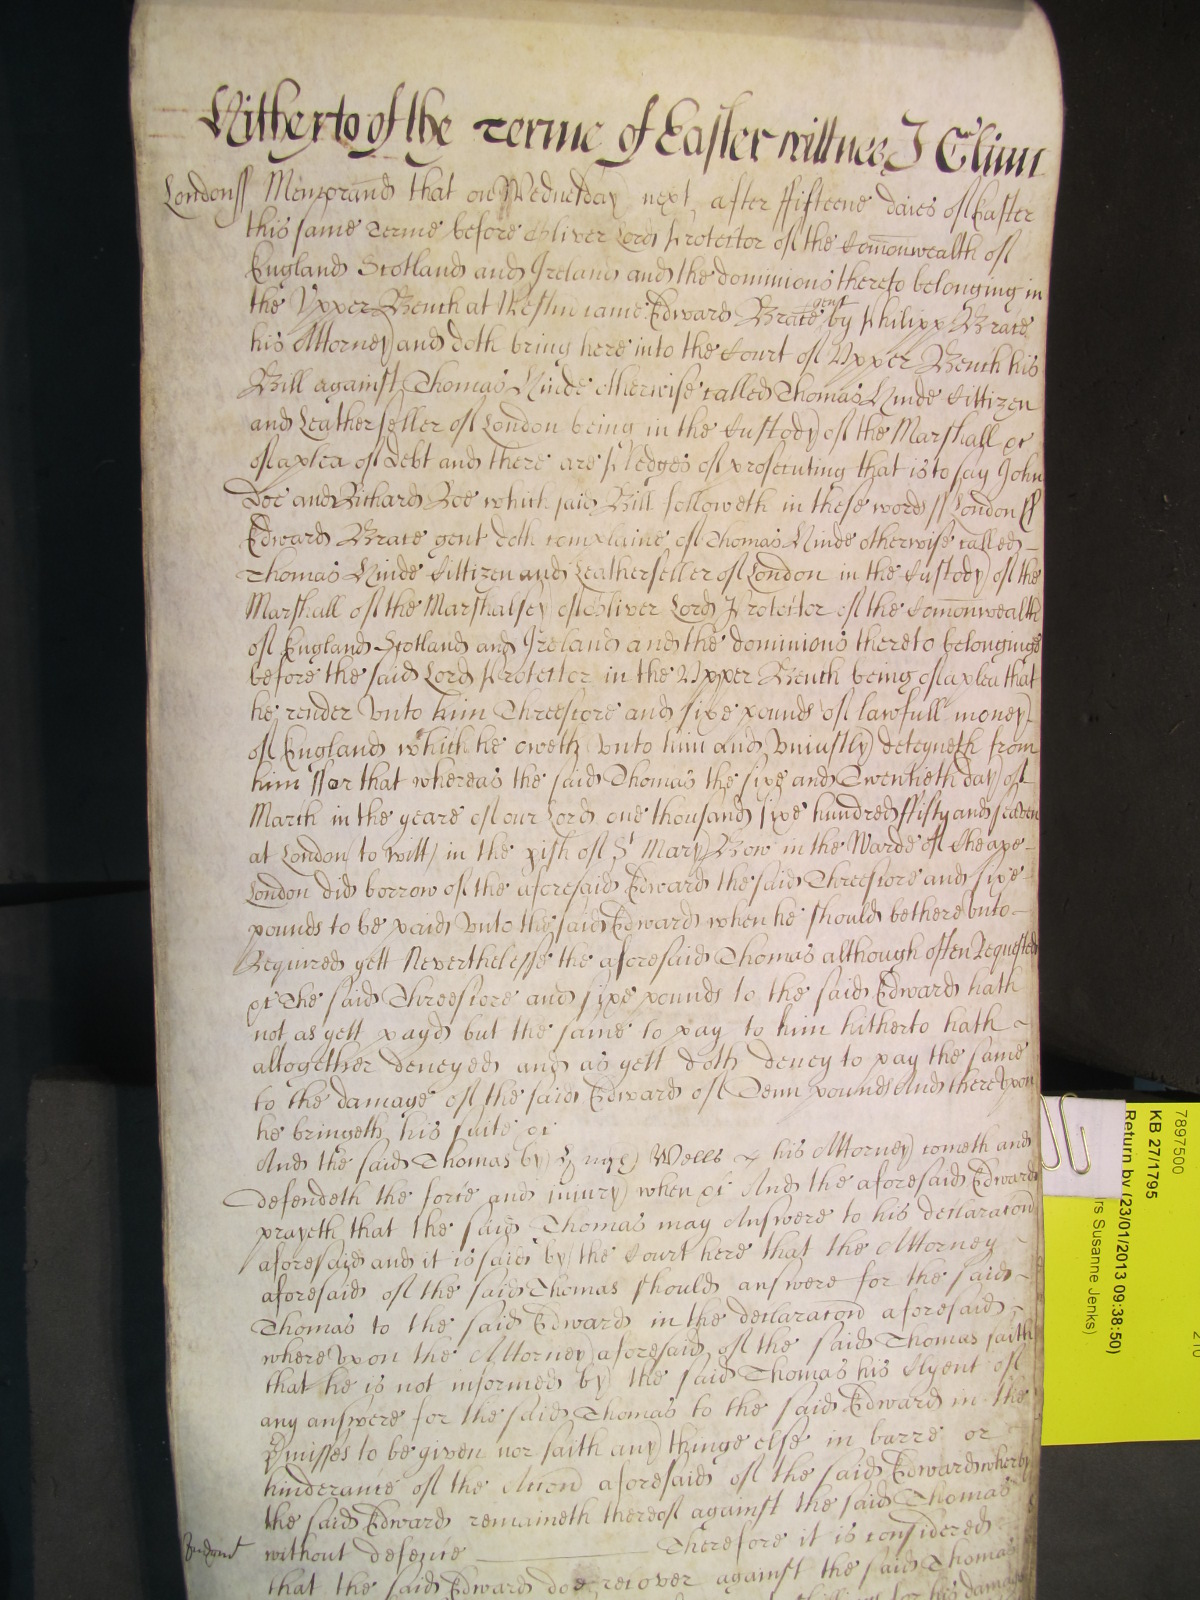 Hitherto of the Terme of Easter wittnes J Glynn
London ss Memorand that on Wednesday next after ffifteene daies of Easter
this same Terme before Oliver Lord Protector of the Comonwealth of
England Scotland and Ireland and the dominions thereto belonging in
the Upper Bench at Westm came Edward Brace gent by Philipp Brace
his Attorney and doth bring here into the Court of Upper Bench his
Bill against Thomas Hinde otherwise called Thomas Hinde Cittizen
and Leatherseller of London being in the Custody of the Marshall &c
of a plea of Debt and there are Pledges of prosecuting that is to say John
Doe and Richard Roe which said Bill followeth in these words ss London ss
Edward Brace gent doth complaine of Thomas Hinde otherwise called
Thomas Hinde Cittizen and Leatherseller of London in the Custody of the
Marshall of the Marshalsey of Oliver Lord Protector of the Comonwealth
of England Scotland and Ireland and the dominions thereto belonginge
before the said Lord Protector in the Upper Bench being of a plea that
he render unto him Threescore and sixe pounds of lawfull money
of England which he oweth unto him and uniustly deteyneth from
him ffor that whereas the said Thomas the sixe and Twentieth day of
March in the yeare of our Lord one thousand sixe hundred ffifty and seaven
at London to witt in the pish of St Mary Bow in the Warde of Cheape
London did borrow of the aforesaid Edward the said Threescore and sixe
pounds to be paid unto the said Edward when he should be thereunto
Required yett Neverthelesse the aforesaid Thomas although often Requested
&c The said Threescore and sixe pounds to the said Edward hath
not as yett payd but the same to pay to him hitherto hath
altogether denyed and as yett doth deney to pay the same
to the damage of the said Edward of Tenn pounds And thereupon
he bringeth his suite &c
And the said Thomas by Wells his Attorney cometh and
defendeth the force and injury when &c And the aforesaid Edward
prayeth that the said Thomas may Answere to his declaracon
aforesaid and it is said by the Court here that the Attorney
aforesaid of the said Thomas should answere for the said
Thomas to the said Edward in the declaracon aforesaid
whereupon the Attorney aforesaid of the said Thomas saith
that he is not informed by the said Thomas his Clyent of
any answere for the said Thomas to the said Edward in the
Pmisses to be given nor saith any thinge else in barre or
hinderance of the Accon aforesaid of the said Edward whereby
the said Edward remaineth thereof against the said Thomas
Judgmt without defence Therefore it is considered
that the said Edward doe recover against the said Thomas
for his damage
7897500
KB 27/1795
Return by (23/01/2013 09:38:50)
rs Susanne Jenks)